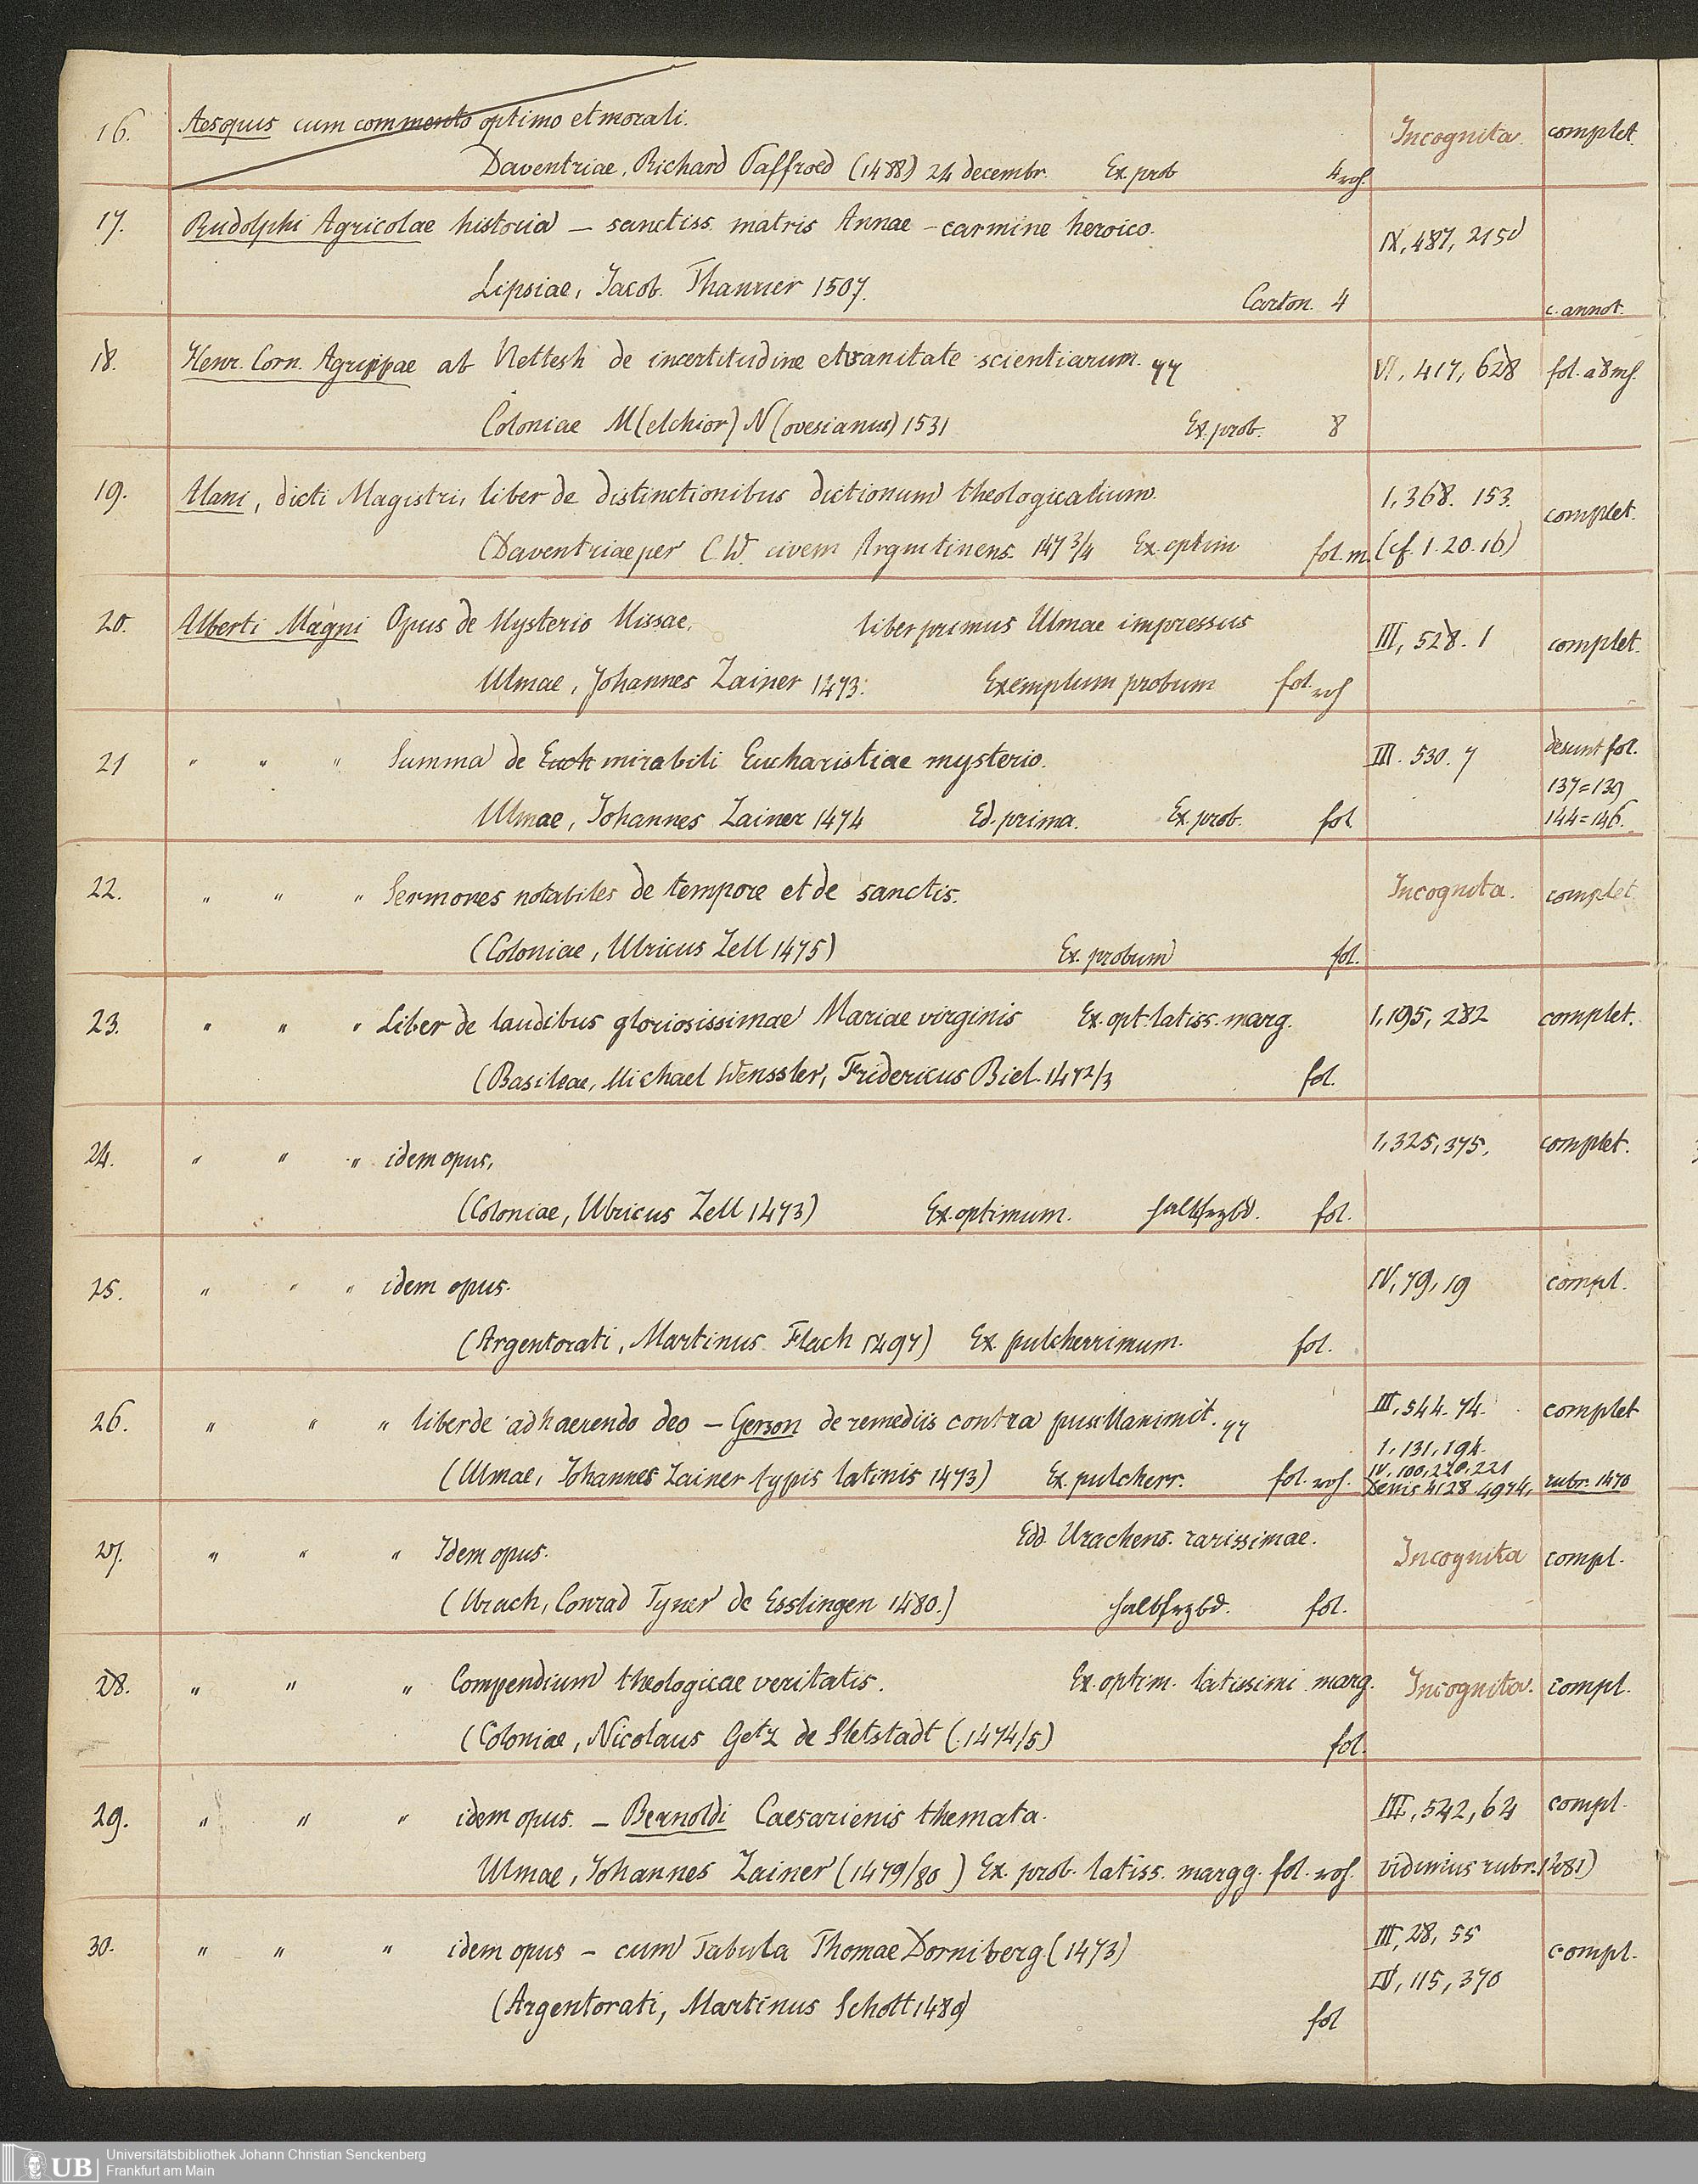 16. Aesopus cum commento optimo et morali. Incognita. complet.
Daventriae, Richard Paffroed (1488) 24 decembr. Ex. prob 4
17. Rudolphi Agricolae historia — sanctiss. matris Annae – carmine heroico. IX, 487, 215d
Lipsiae, Jacob. Thanner 1507. Carton. 4 c. annot.
18. Henr. Corn. Agrippae ab Nettesh de incertitudine et vanitate scientiarum. VI, 417, 628
Coloniae M(elchior) N(ovesianus) 1531 Ex. prob. 8
19. Alani, dicti Magistri, liber de distinctionibus dictionum theologicalium. 1, 368. 153. complet.
(Daventriae per C.W. civem Argentinens. 147 3/4 Ex. optim fol. m. (cf. 1. 20. 16)
20. Alberti Magni Opus de Mysterio Missae. liber primus Ulmae impressus III, 528. 1 complet.
Ulmae, Johannes Zainer 1473. Exemplum probum fol.
21 " " " Summa de Euch mirabili Eucharistiae mysterio. III. 530. 7 desunt fol.
137=139
Ulmae, Johannes Zainer 1474 Ed. prima. Ex. prob. fol. 144=146.
22. " " " Sermones notabiles de tempore et de sanctis. Incognita. complet
(Coloniae, Ulricus Zell 1475) Ex. probum fol.
23. " " " Liber de laudibus gloriosissimae Mariae virginis Ex. opt. latiss. marg. 1, 195, 282 complet.
(Basileae, Michael Wenssler, Fridericus Biel. 1472/3 fol.
24. " " " idem opus. 1, 325, 375. complet.
(Coloniae, Ulricus Zell 1473) Ex. optimum. halbfrzbd. fol.
25. " " " idem opus. IV, 79, 19 compl.
(Argentorati, Martinus Flach 1497) Ex. pulcherrimum. fol.
26. " " " liber de adhaerendo deo — Gerson de remediis contra pusillanimit. III, 544. 74. complet
1, 131, 194.
(Ulmae, Johannes Zainer typis latinis 1473) Ex. pulcherr. fol. IV, 100, 220, 221
Denis 4128 4974, rubr. 1470
27. " " " Idem opus. Edd. Urachens. rarissimae. Incognita compl.
(Urach, Conrad Fyner de Esslingen 1480.) halbfrzbd. fol.
28. " " " Compendium theologicae veritatis. Ex. optim. latissimi marg. Incognita. compl.
(Coloniae, Nicolaus Getz de Sletstadt (1474/5) fol.
29. " " " idem opus. — Bernoldi Caesarienis themata. III, 542, 64 compl.
Ulmae, Johannes Zainer (1479/80) Ex. prob. latiss. margg. fol. vidimus rubr. 1481)
30. " " " idem opus — cum Tabula Thomae Dorniberg (1473) III, 28, 55 compl.
IV, 115, 370
(Argentorati, Martinus Schott 1489) fol
UB Universitätsbibliothek Johann Christian Senckenberg
Frankfurt am Main